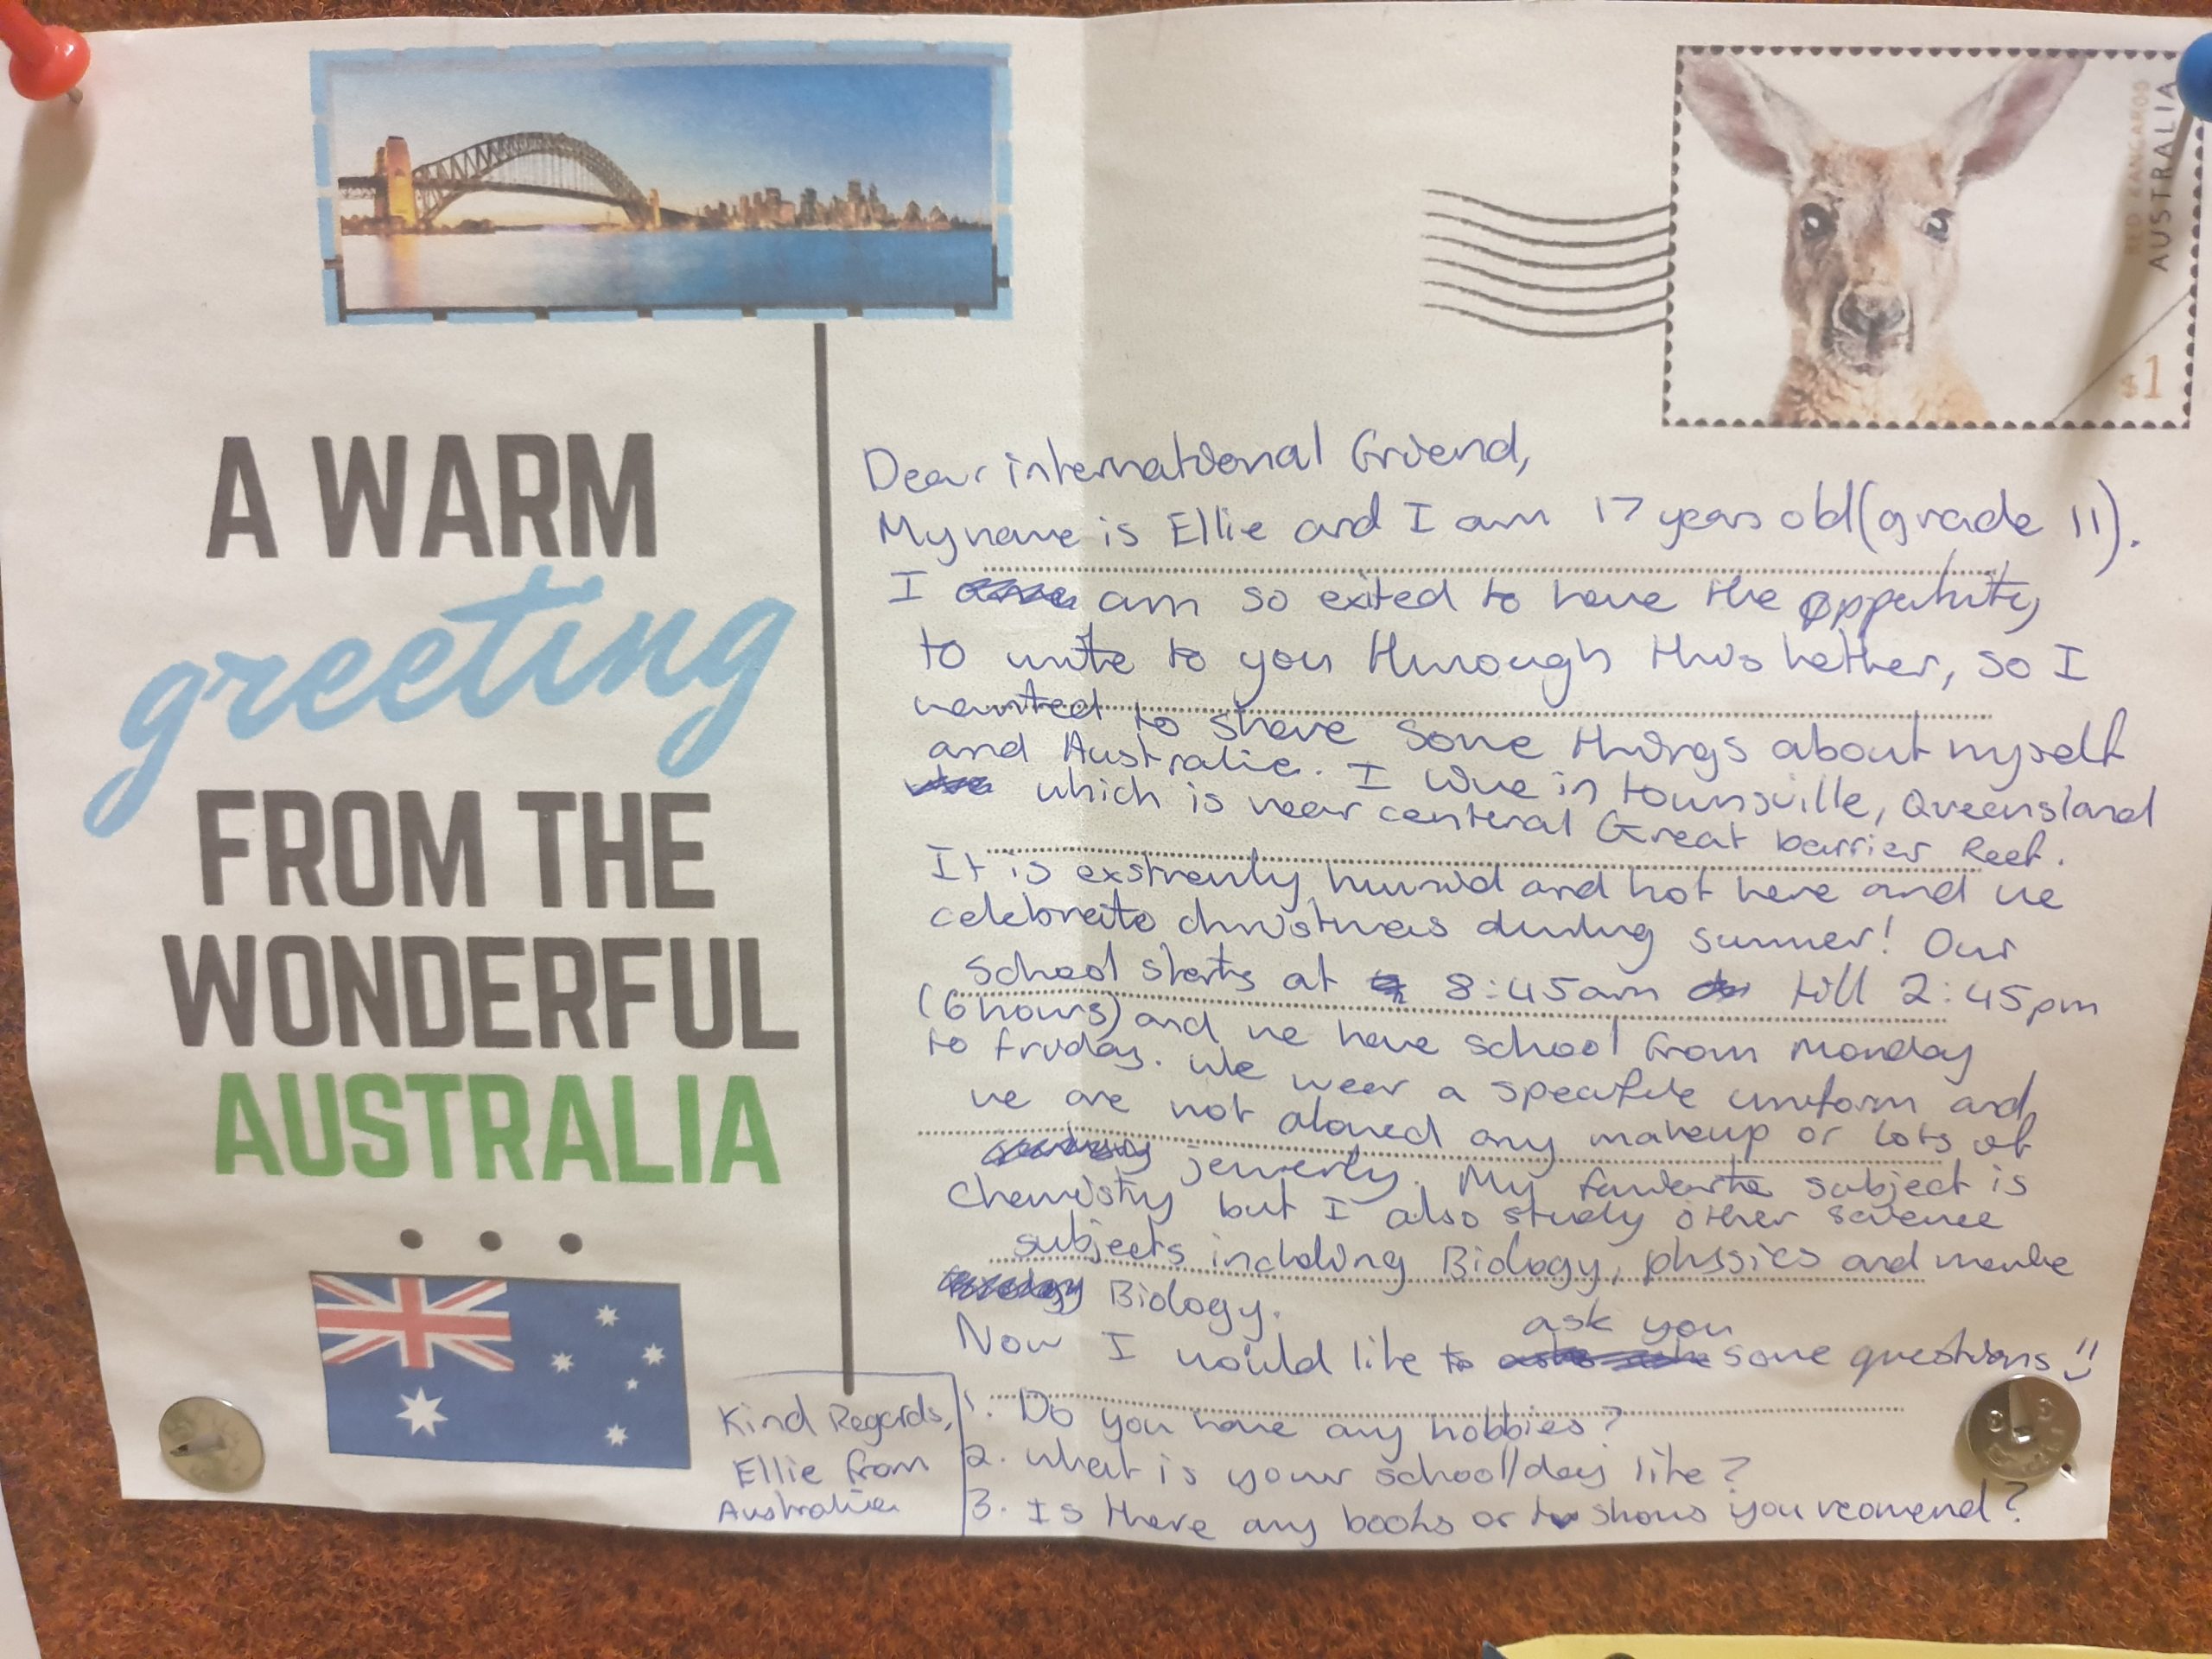 A WARM
greeting
FROM THE
WONDERFUL
AUSTRALIA
RED KANGAROO
AUSTRALIA
$1
Dear international friend,
My name is Ellie and I am 17 years old (grade 11).
I am so exited to have the oppertuity
to write to you through this letther, so I
wanted to share some things about myself
and Australia. I live in townsville, Queensland
which is near centeral Great barrier Reef.
It is exstremly humid and hot here and we
celebrate christmas during summer! Our
school starts at 8:45am till 2:45pm
(6 hours) and we have school from Monday
to friday. We wear a specific uniform and
we are not alowed any makeup or lots of
jewerly. My favorite subject is
Chemistry but I also study other science
subjects including Biology, phssics and
Biology.
Now I would like to ask you some questions
1. Do you have any hobbies?
2. What is your school/day like?
3. Is there any books or tv shows you recomend?
Kind Regards,
Ellie from
Australia